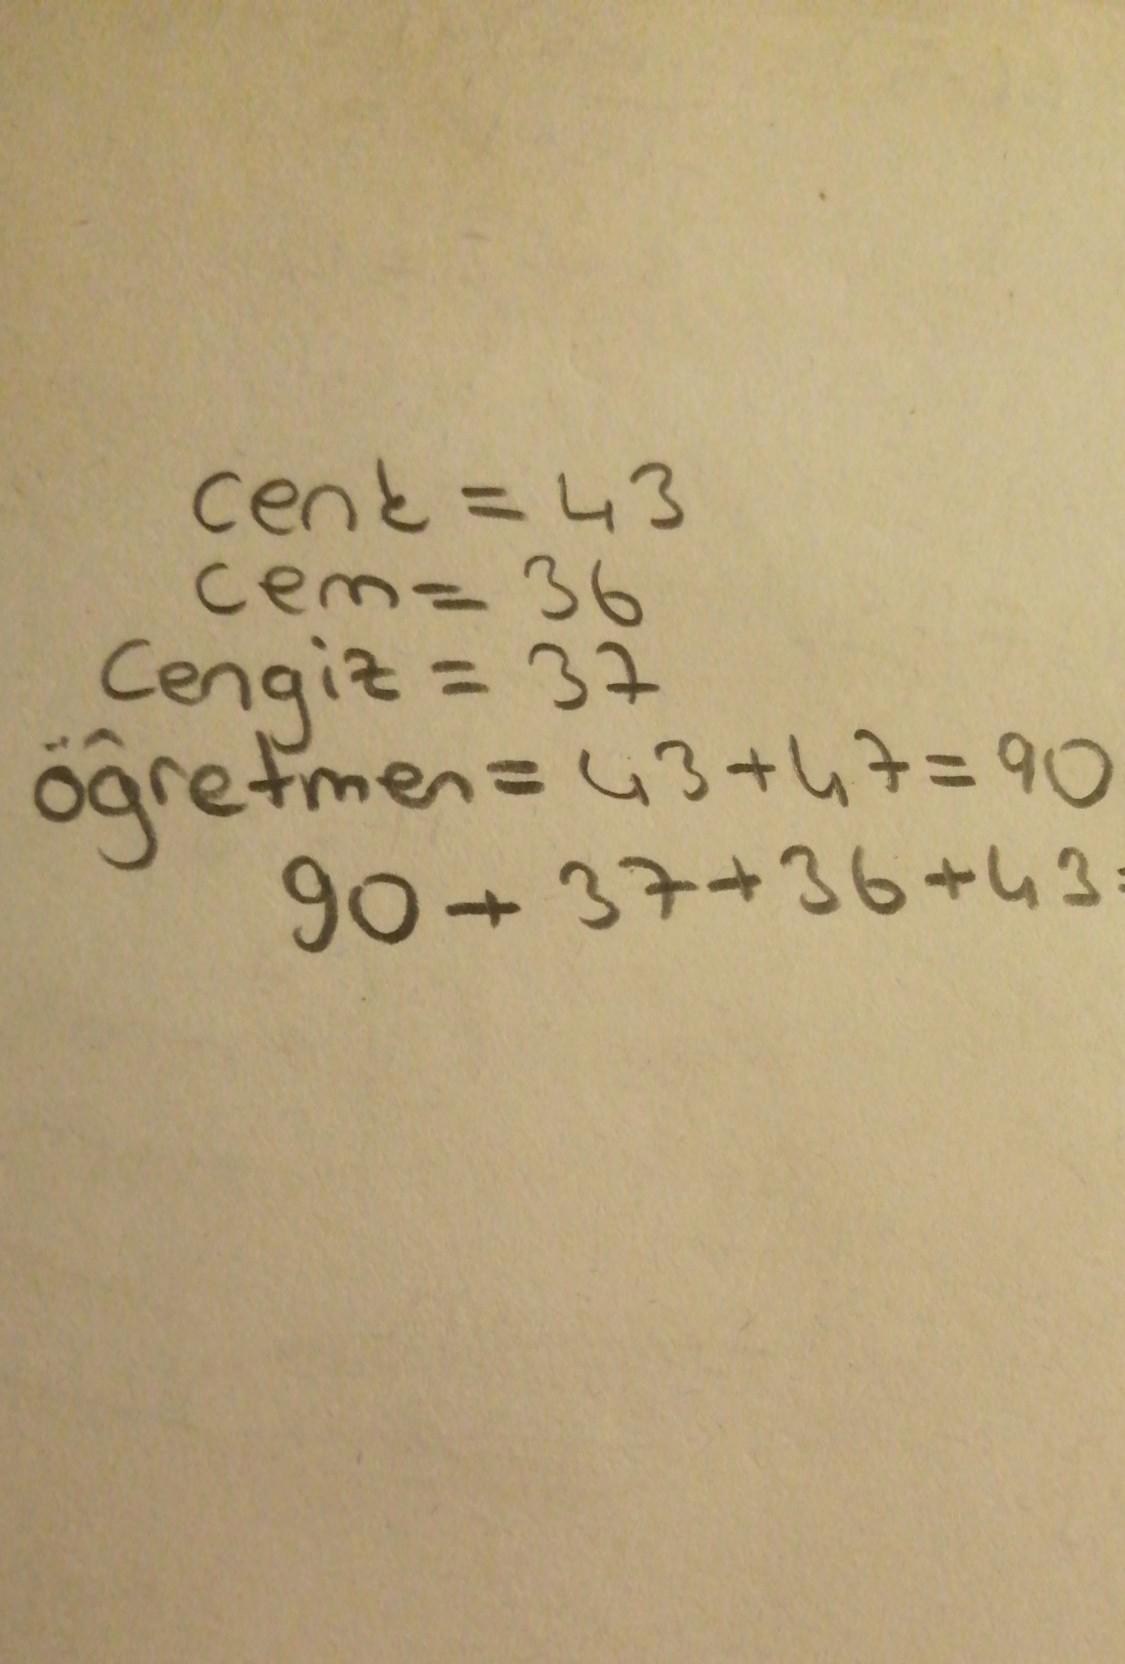 cenk = 43
cem = 36
Cengiz = 37
öğretmen = 43+47=90
90 + 37+36+43=